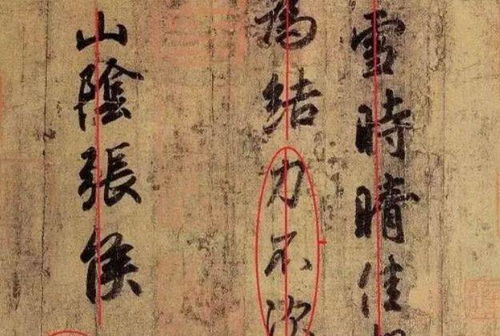 雪時晴佳
為結力不次
山陰張侯